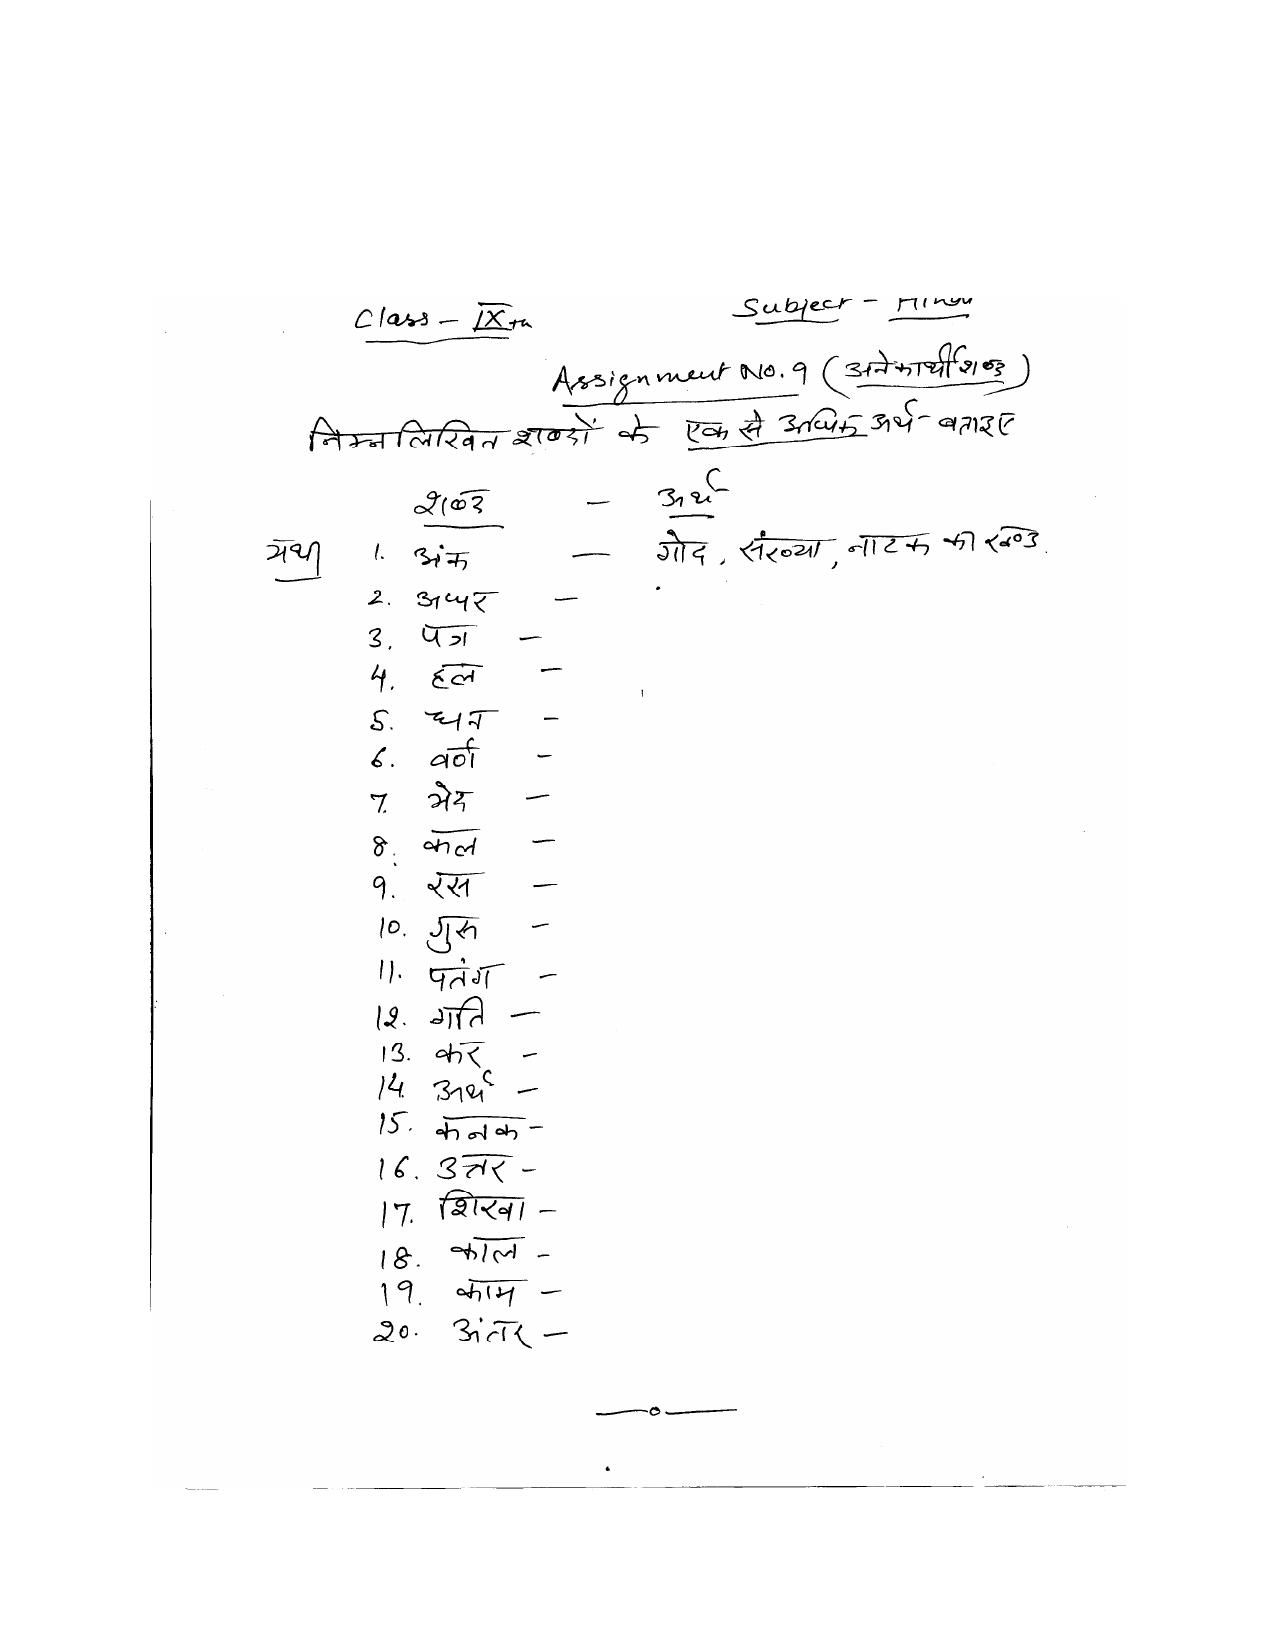 Class - IXth
Subject - Hindi
Assignment No. 9 (अनेकार्थी शब्द)
निम्नलिखित शब्दों के एक से अधिक अर्थ बताइए
शब्द - अर्थ
यथा 1. अंक - गोद, संख्या, नाटक की खण्ड.
2. अधर -
3. पत्र -
4. हल -
5. घन -
6. वर्ण -
7. भेद -
8. कल -
9. रस -
10. गुरू -
11. पतंग -
12. गति -
13. कर -
14. अर्थ -
15. कनक -
16. उत्तर -
17. शिखा -
18. काल -
19. काम -
20. अंतर -